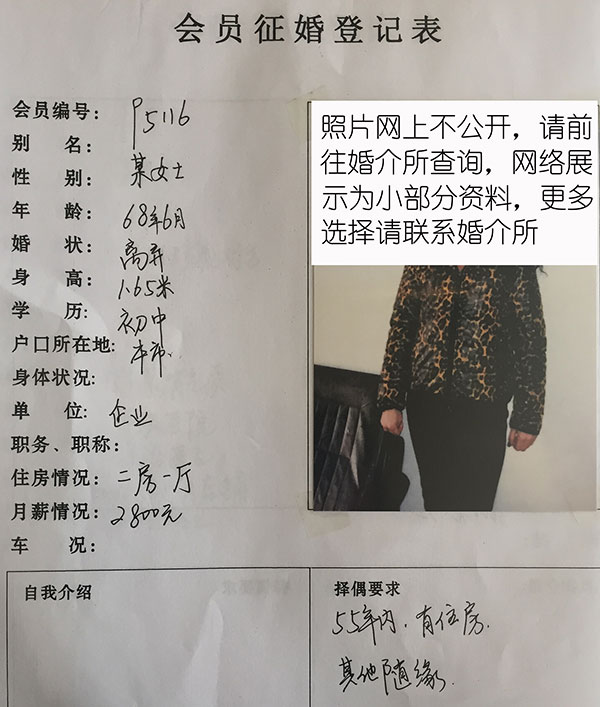 会员征婚登记表
会员编号: P5116
别 名:
性 别: 某女士
年 龄: 68年6月
婚 状: 离异
身 高: 1.65米
学 历: 初中
户口所在地: 本市.
身体状况:
单 位: 企业
职务、职称:
住房情况: 二房一厅
月薪情况: 2800元
车 况:
照片网上不公开，请前
往婚介所查询，网络展
示为小部分资料，更多
选择请联系婚介所
自我介绍
择偶要求
55年内. 有住房.
其他随缘.